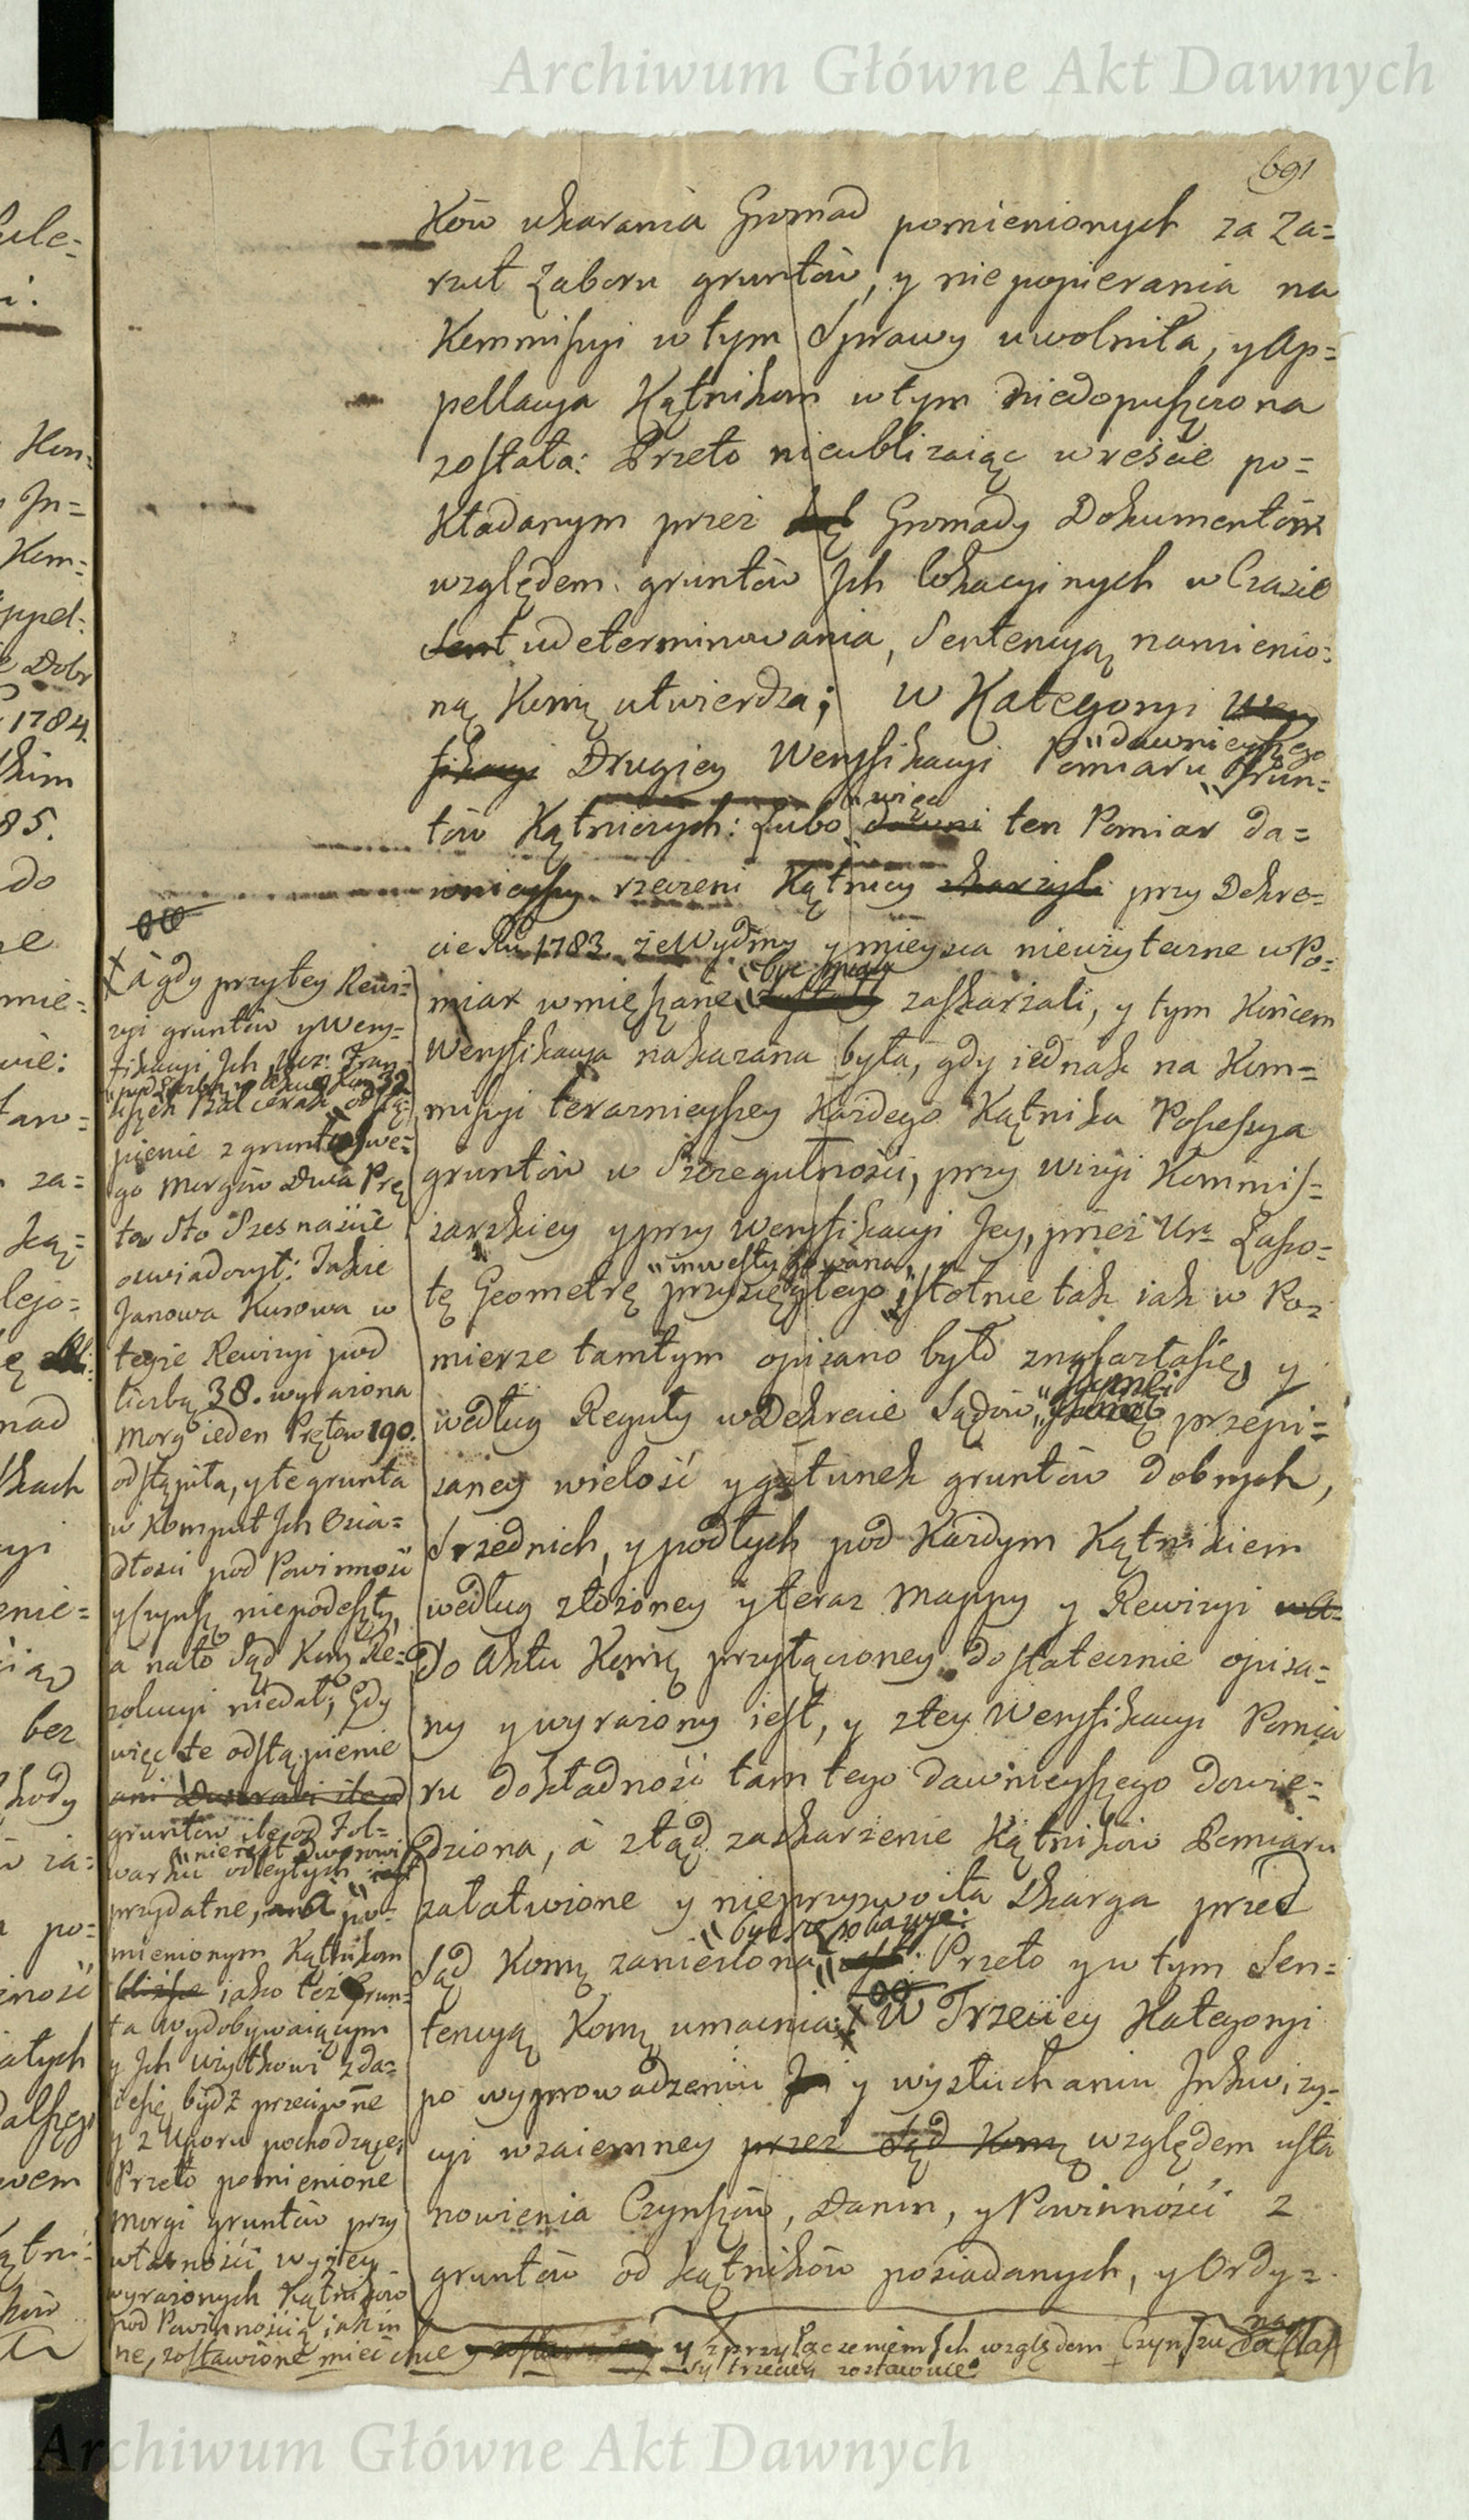 Archiwum Główne Akt Dawnych
691
ków ukarania Gromad pomienionych za Za=
rzut Zaboru gruntów, y niepopierania na
Kommissyi w tym Sprawy uwolniła, y Ap=
pellacya Kątnikom w tym niedopuszczona
została: Przeto nieubliżaiąc w reście po=
kładanym przez Gromady Dokumentóm
względem gruntów Jch lokacyinych w Czasie
Sent udeterminowania, Sentencyą namienio=
ną Komą utwierdza; w Kategoryi Wery
fikacyi Drugiey Weryfikacyi Pomiaru "dawnieyszego Grun=
tów Kątniczych: Lubo "więc ten Pomiar da=
wnieyszy rzeczeni Kątnicy skarzyli przy Dekre=
cie Ru 1783. że Wydmy y mieysca nieużyteczne w Po=
miar wmięszane "być miały zaskarżali, y tym Końcem
Weryfikacya nakazana była, gdy iednak na Kom=
missyi terażnieyszey Każdego Kątnika Possessya
gruntów w Szczegulności, przy wizyi Kommis=
sarskiey y przy Weryfikacyi Jey, przez Ur Lasso=
tę Geometrę przysięgłego "inwestygowana" istotnie tak iak w Po=
mierze tamtym opisano było znalazła się, y
według Reguły w Dekrecie Sądów przepi=
saney wielość y gatunek gruntów dobrych,
Srzednich, y podłych pod Każdym Kątnikiem
według złożoney y teraz Mappy y Rewizyi
do Aktu Komą przyłączoney dostatecznie opisa=
ny y wyrażony iest, y z tey Weryfikacyi Pomia
ru dokładność tamtego dawnieyszego dowie=
dziona, à ztąd zaskarżenie Kątników Pomiaru
załatwione y nieprzyzwoita skarga przed
Sąd Komą zaniesiona "być się pokazuie: Przeto y w tym Sen=
tencyą Komą umacnia: X W Trzeciey Kategoryi
po wyprowadzeniu y wysłuchaniu Jnkwizy=
cyi wzaiemney przez Sąd Komą względem usta
nowienia Czynszów, Danin, y Powinności z
gruntów od kątników posiadanych, y Ordy=
X à gdy przy tey Rewi=
zyi gruntów y Wery=
fikacyi Jch
Balcerak odstą=
pienie z gruntu swe=
go Morgów Dwa Prę
tów Sto Szesnaście
oświadczył: Także
Janowa Kurowa w
teyże Rewizyi pod
liczbą 38. wyrażona
Morg ieden Prętów 190.
odstąpiła, y te grunta
w Komput Jch Osia=
dłości pod Powinność
y Czynsz niepodeszły,
a nato Sąd Komą Re=
zolucyi niedał; Gdy
więc te odstąpienie
gruntów ile od Fol=
warku odległych "nieiest Dworowi
przydatne, a po=
mienionym Kątnikom
bliższe iako też Grun=
ta wydobywaiącym
y Jch Użytkowi zda=
ie się bydź przeciwne
y z Uporu pochodzące;
Przeto pomienione
Morgi gruntów przy
własności wyżey
wyrażonych Kątników
pod Powinnością iak in
ne, zostawione mieć chce y z przyłączeniem Jch względem Czynszu
trzeciey zostawuie
Archiwum Główne Akt Dawnych